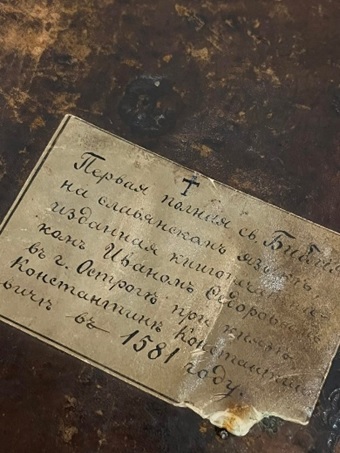 ✝
Первая полная св. Библія
на славянскомъ языкѣ,
изданная книгопечатни-
комъ Иваномъ Ѳедоровымъ
въ г. Острогѣ при князѣ
Константинѣ Константино-
вичѣ въ 1581 году.